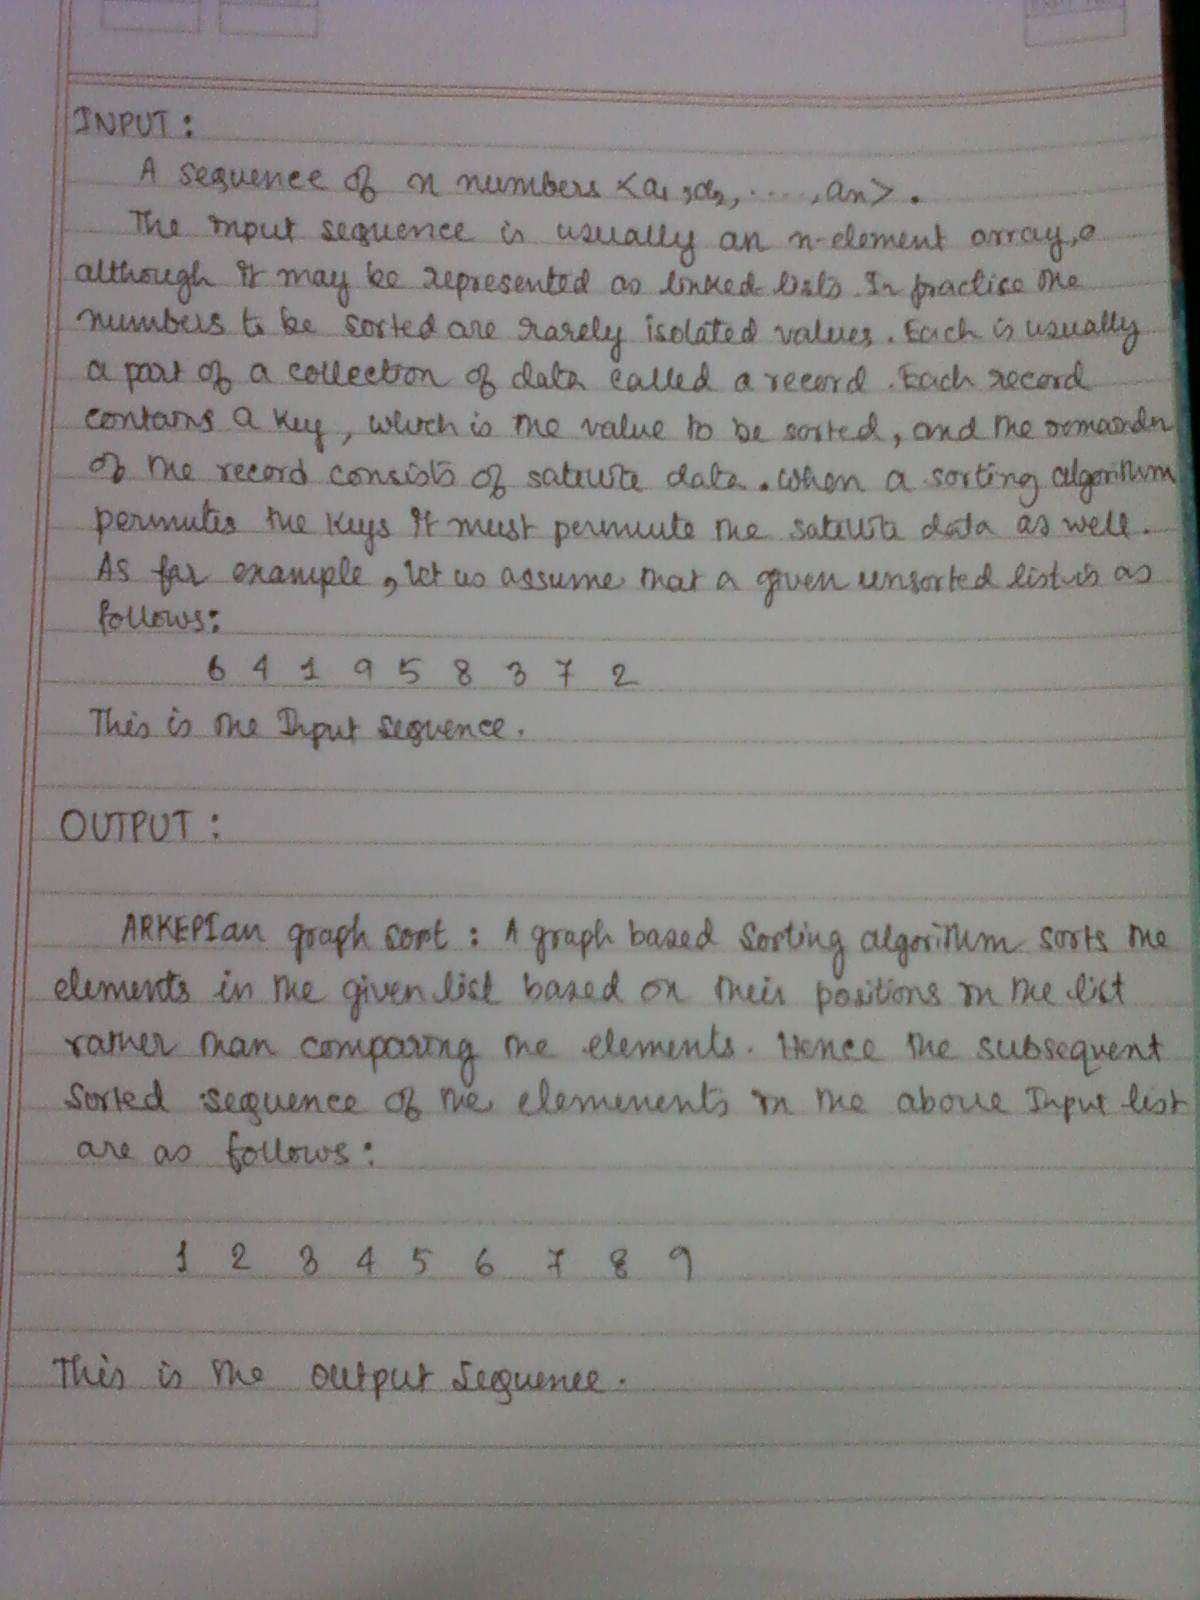 INPUT:
A sequence of n numbers <a1,a2,.....,an>.
The Input sequence is usually an n-element array,
although it may be represented as linked lists. In practise the
numbers to be sorted are rarely isolated values. Each is usually
a part of a collection of data called a record. Each record
contains a key, which is the value to be sorted, and the remainder
of the record consists of satellite data. When a sorting algorithm
permutes the keys it must permute the satellite data as well.
As for example, let us assume that a given unsorted list is as
follows:
6 4 1 9 5 8 3 7 2
This is the Input sequence.
OUTPUT:
ARKEPIan graph sort: A graph based sorting algorithm sorts the
elements in the given list based on their positions in the list
rather than comparing the elements. Hence the subsequent
Sorted sequence of the elemenents in the above Input list
are as follows:
1 2 3 4 5 6 7 8 9
This is the output sequence.